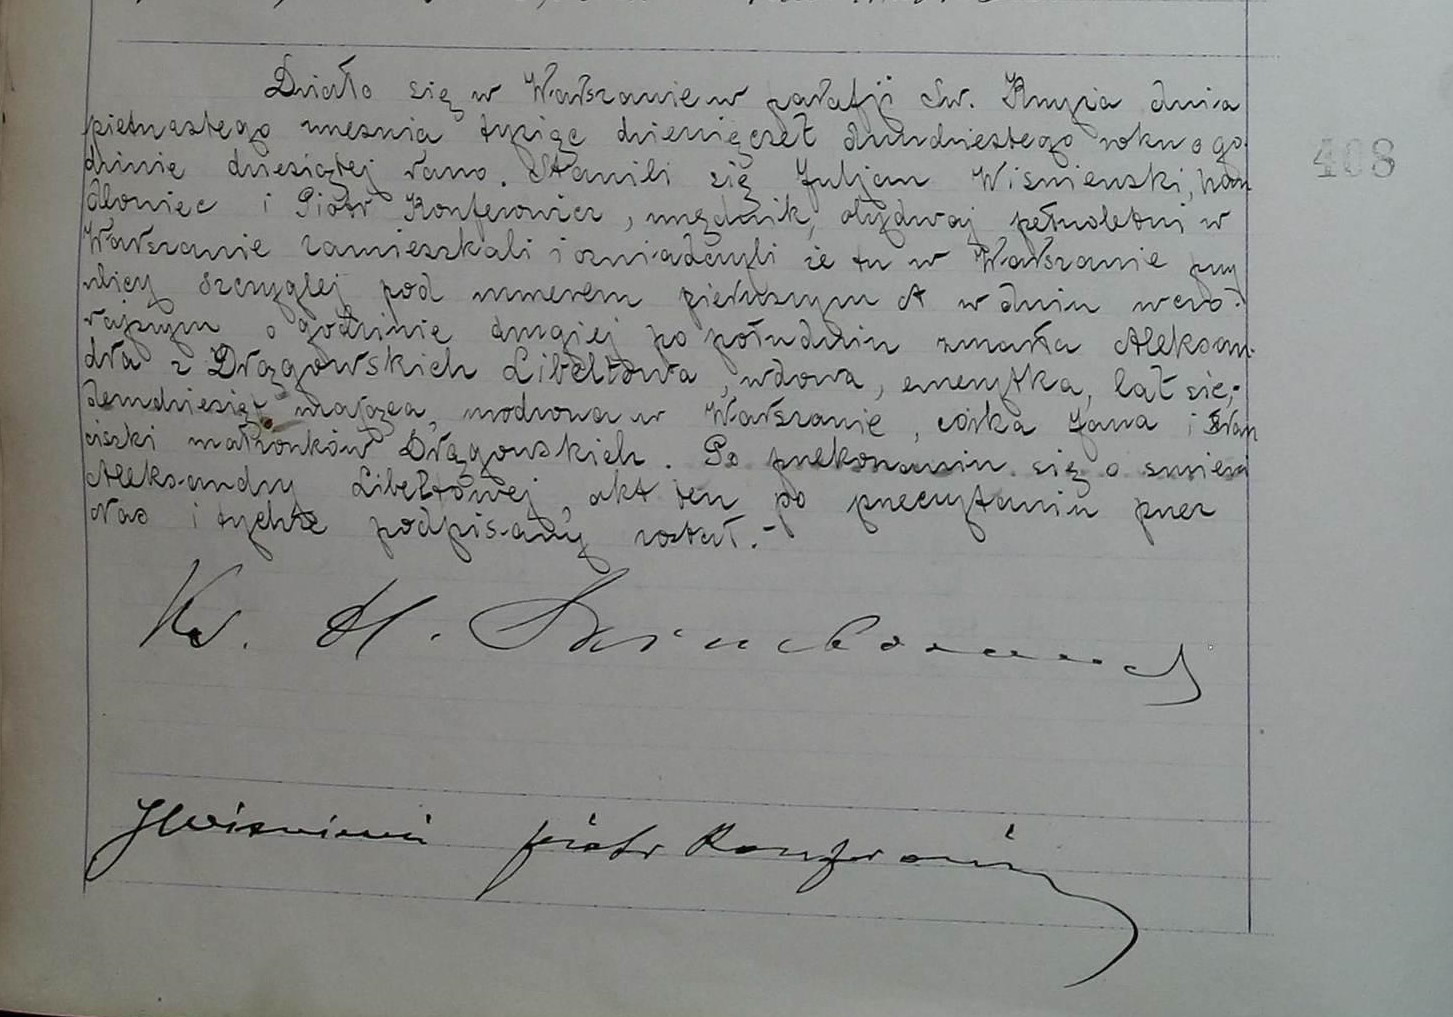 Działo się w Warszawie w parafji Św. Krzyża dnia
piętnastego września tysiąc dziewięćset dwudziestego roku o go-
dzinie dziesiątej rano. Stawili się Juljan Wiśniewski, han
dlowiec i Piotr Konferowicz, urzędnik, obydwaj pełnoletni w
Warszawie zamieszkali i oświadczyli że tu w Warszawie przy
ulicy Szczyglej pod numerem pierwszym A w dniu wczo-
rajszym o godzinie drugiej po południu zmarła Aleksan-
dra z Drągowskich Libeltowa, wdowa, emerytka, lat sie-
demdziesiąt mająca, urodzona w Warszawie, córka Jana i Fran
ciszki małżonków Drągowskich. Po przekonaniu się o śmierci
Aleksandry Libeltowej, akt ten po przeczytaniu przez
Nas i tychże podpisany został.-
408
Ks. H.
JWiśniewski Piotr Konferowicz